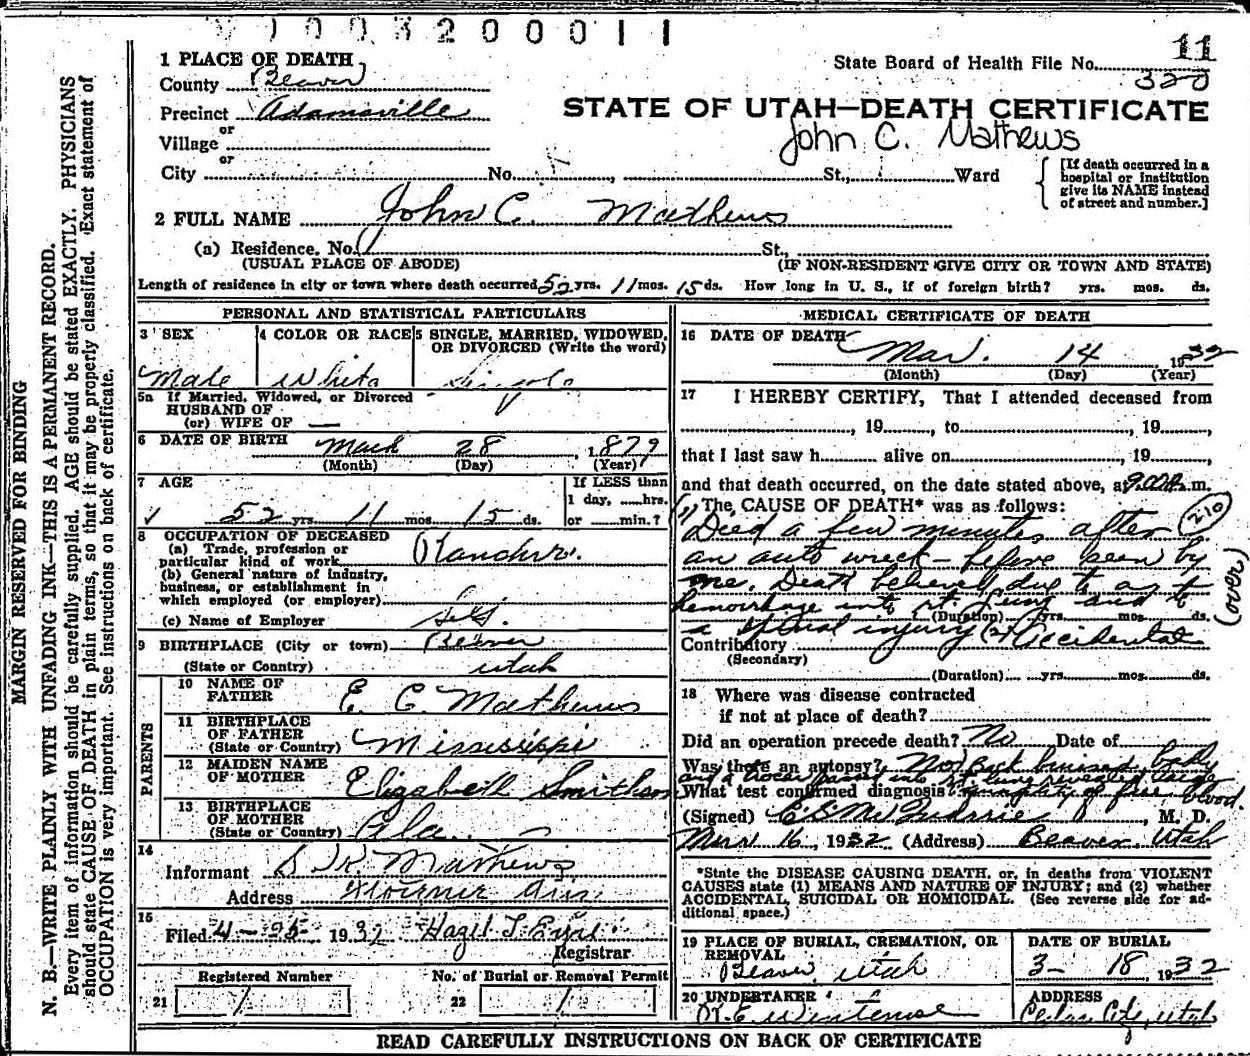 0 0 3 2 0 0 0 1 1
1 PLACE OF DEATH
County Beaver
Precinct Adamsville
or
Village
or
City No. , St., Ward
State Board of Health File No. 11
320
STATE OF UTAH—DEATH CERTIFICATE
John C. Mathews
[If death occurred in a hospital or institution give its NAME instead of street and number.]
2 FULL NAME John C. Mathews
(a) Residence. No. St.,
(USUAL PLACE OF ABODE) (IF NON-RESIDENT GIVE CITY OR TOWN AND STATE)
Length of residence in city or town where death occurred 52 yrs. 11 mos. 15 ds. How long in U. S., if of foreign birth? yrs. mos. ds.
PERSONAL AND STATISTICAL PARTICULARS
3 SEX 4 COLOR OR RACE 5 SINGLE, MARRIED, WIDOWED, OR DIVORCED (Write the word)
Male White Single
5a If Married, Widowed, or Divorced
HUSBAND OF
(or) WIFE OF —
6 DATE OF BIRTH March 28, 1879
(Month) (Day) (Year)
7 AGE If LESS than
1 day, hrs.
52 yrs. 11 mos. 15 ds. or min.?
8 OCCUPATION OF DECEASED
(a) Trade, profession or
particular kind of work Rancher.
(b) General nature of industry,
business, or establishment in
which employed (or employer)
(c) Name of Employer Self.
9 BIRTHPLACE (City or town) Beaver
(State or Country) Utah
PARENTS
10 NAME OF
FATHER E. C. Mathews
11 BIRTHPLACE
OF FATHER
(State or Country) Mississippi
12 MAIDEN NAME
OF MOTHER Elizabeth Smithson
13 BIRTHPLACE
OF MOTHER
(State or Country) Ala.
14
Informant S. K. Mathews
Address
15
Filed 4-25- 1932 Hazel T.
Registrar
Registered Number No. of Burial or Removal Permit
21 22
MEDICAL CERTIFICATE OF DEATH
16 DATE OF DEATH
Mar. 14 1932
(Month) (Day) (Year)
17 I HEREBY CERTIFY, That I attended deceased from
, 19 , to , 19 ,
that I last saw h alive on , 19 ,
and that death occurred, on the date stated above, at 9:00 P. m.
The CAUSE OF DEATH* was as follows:
(1) Died a few minutes after 210
an auto wreck—before seen by
me. Death believed due to a
hemorrhage into rt. lung and to
(Duration) yrs. mos. ds.
(over)
a spinal injury (2) Accidental
Contributory
(Secondary)
(Duration) yrs. mos. ds.
18 Where was disease contracted
if not at place of death?
Did an operation precede death? No Date of
Was there an autopsy? No Back bruised, body
and a trocar passed into rt. lung revealed large
What test confirmed diagnosis? quantity of free blood.
(Signed) , M. D.
Mar 16, 1932 (Address) Beaver, Utah
*State the DISEASE CAUSING DEATH, or, in deaths from VIOLENT CAUSES state (1) MEANS AND NATURE OF INJURY; and (2) whether ACCIDENTAL, SUICIDAL OR HOMICIDAL. (See reverse side for additional space.)
19 PLACE OF BURIAL, CREMATION, OR REMOVAL DATE OF BURIAL
Beaver, Utah 3- 18 1932
20 UNDERTAKER ADDRESS
Cedar City, Utah
READ CAREFULLY INSTRUCTIONS ON BACK OF CERTIFICATE
MARGIN RESERVED FOR BINDING
N. B.—WRITE PLAINLY WITH UNFADING INK—THIS IS A PERMANENT RECORD.
Every item of information should be carefully supplied. AGE should be stated EXACTLY. PHYSICIANS
should state CAUSE OF DEATH in plain terms, so that it may be properly classified. Exact statement of
OCCUPATION is very important. See instructions on back of certificate.